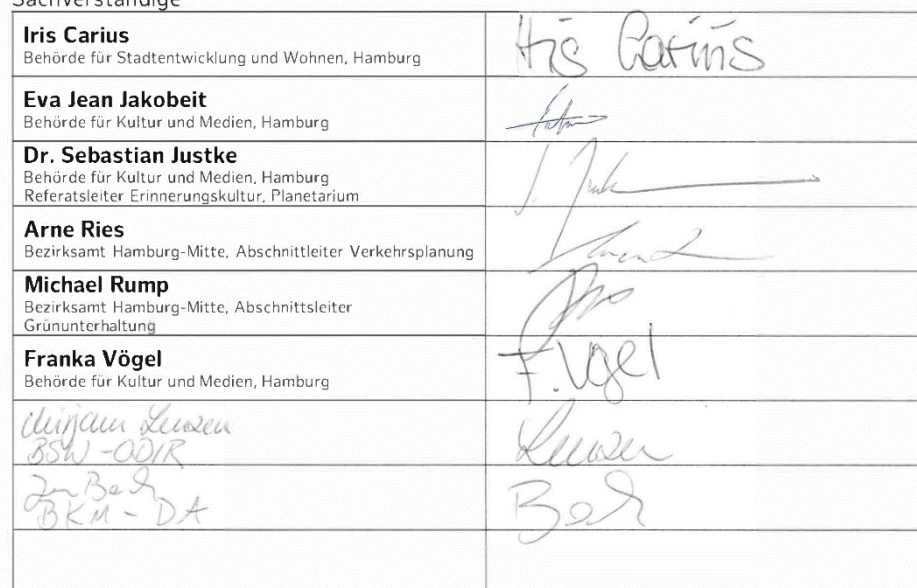 Sachverständige
Iris Carius
Behörde für Stadtentwicklung und Wohnen, Hamburg
Iris Carius
Eva Jean Jakobeit
Behörde für Kultur und Medien, Hamburg
Dr. Sebastian Justke
Behörde für Kultur und Medien, Hamburg
Referatsleiter Erinnerungskultur, Planetarium
Arne Ries
Bezirksamt Hamburg-Mitte, Abschnittleiter Verkehrsplanung
Michael Rump
Bezirksamt Hamburg-Mitte, Abschnittsleiter
Grünunterhaltung
Franka Vögel
Behörde für Kultur und Medien, Hamburg
F. Vögel
Mirjam
BSW - OD/R
BKM - DA